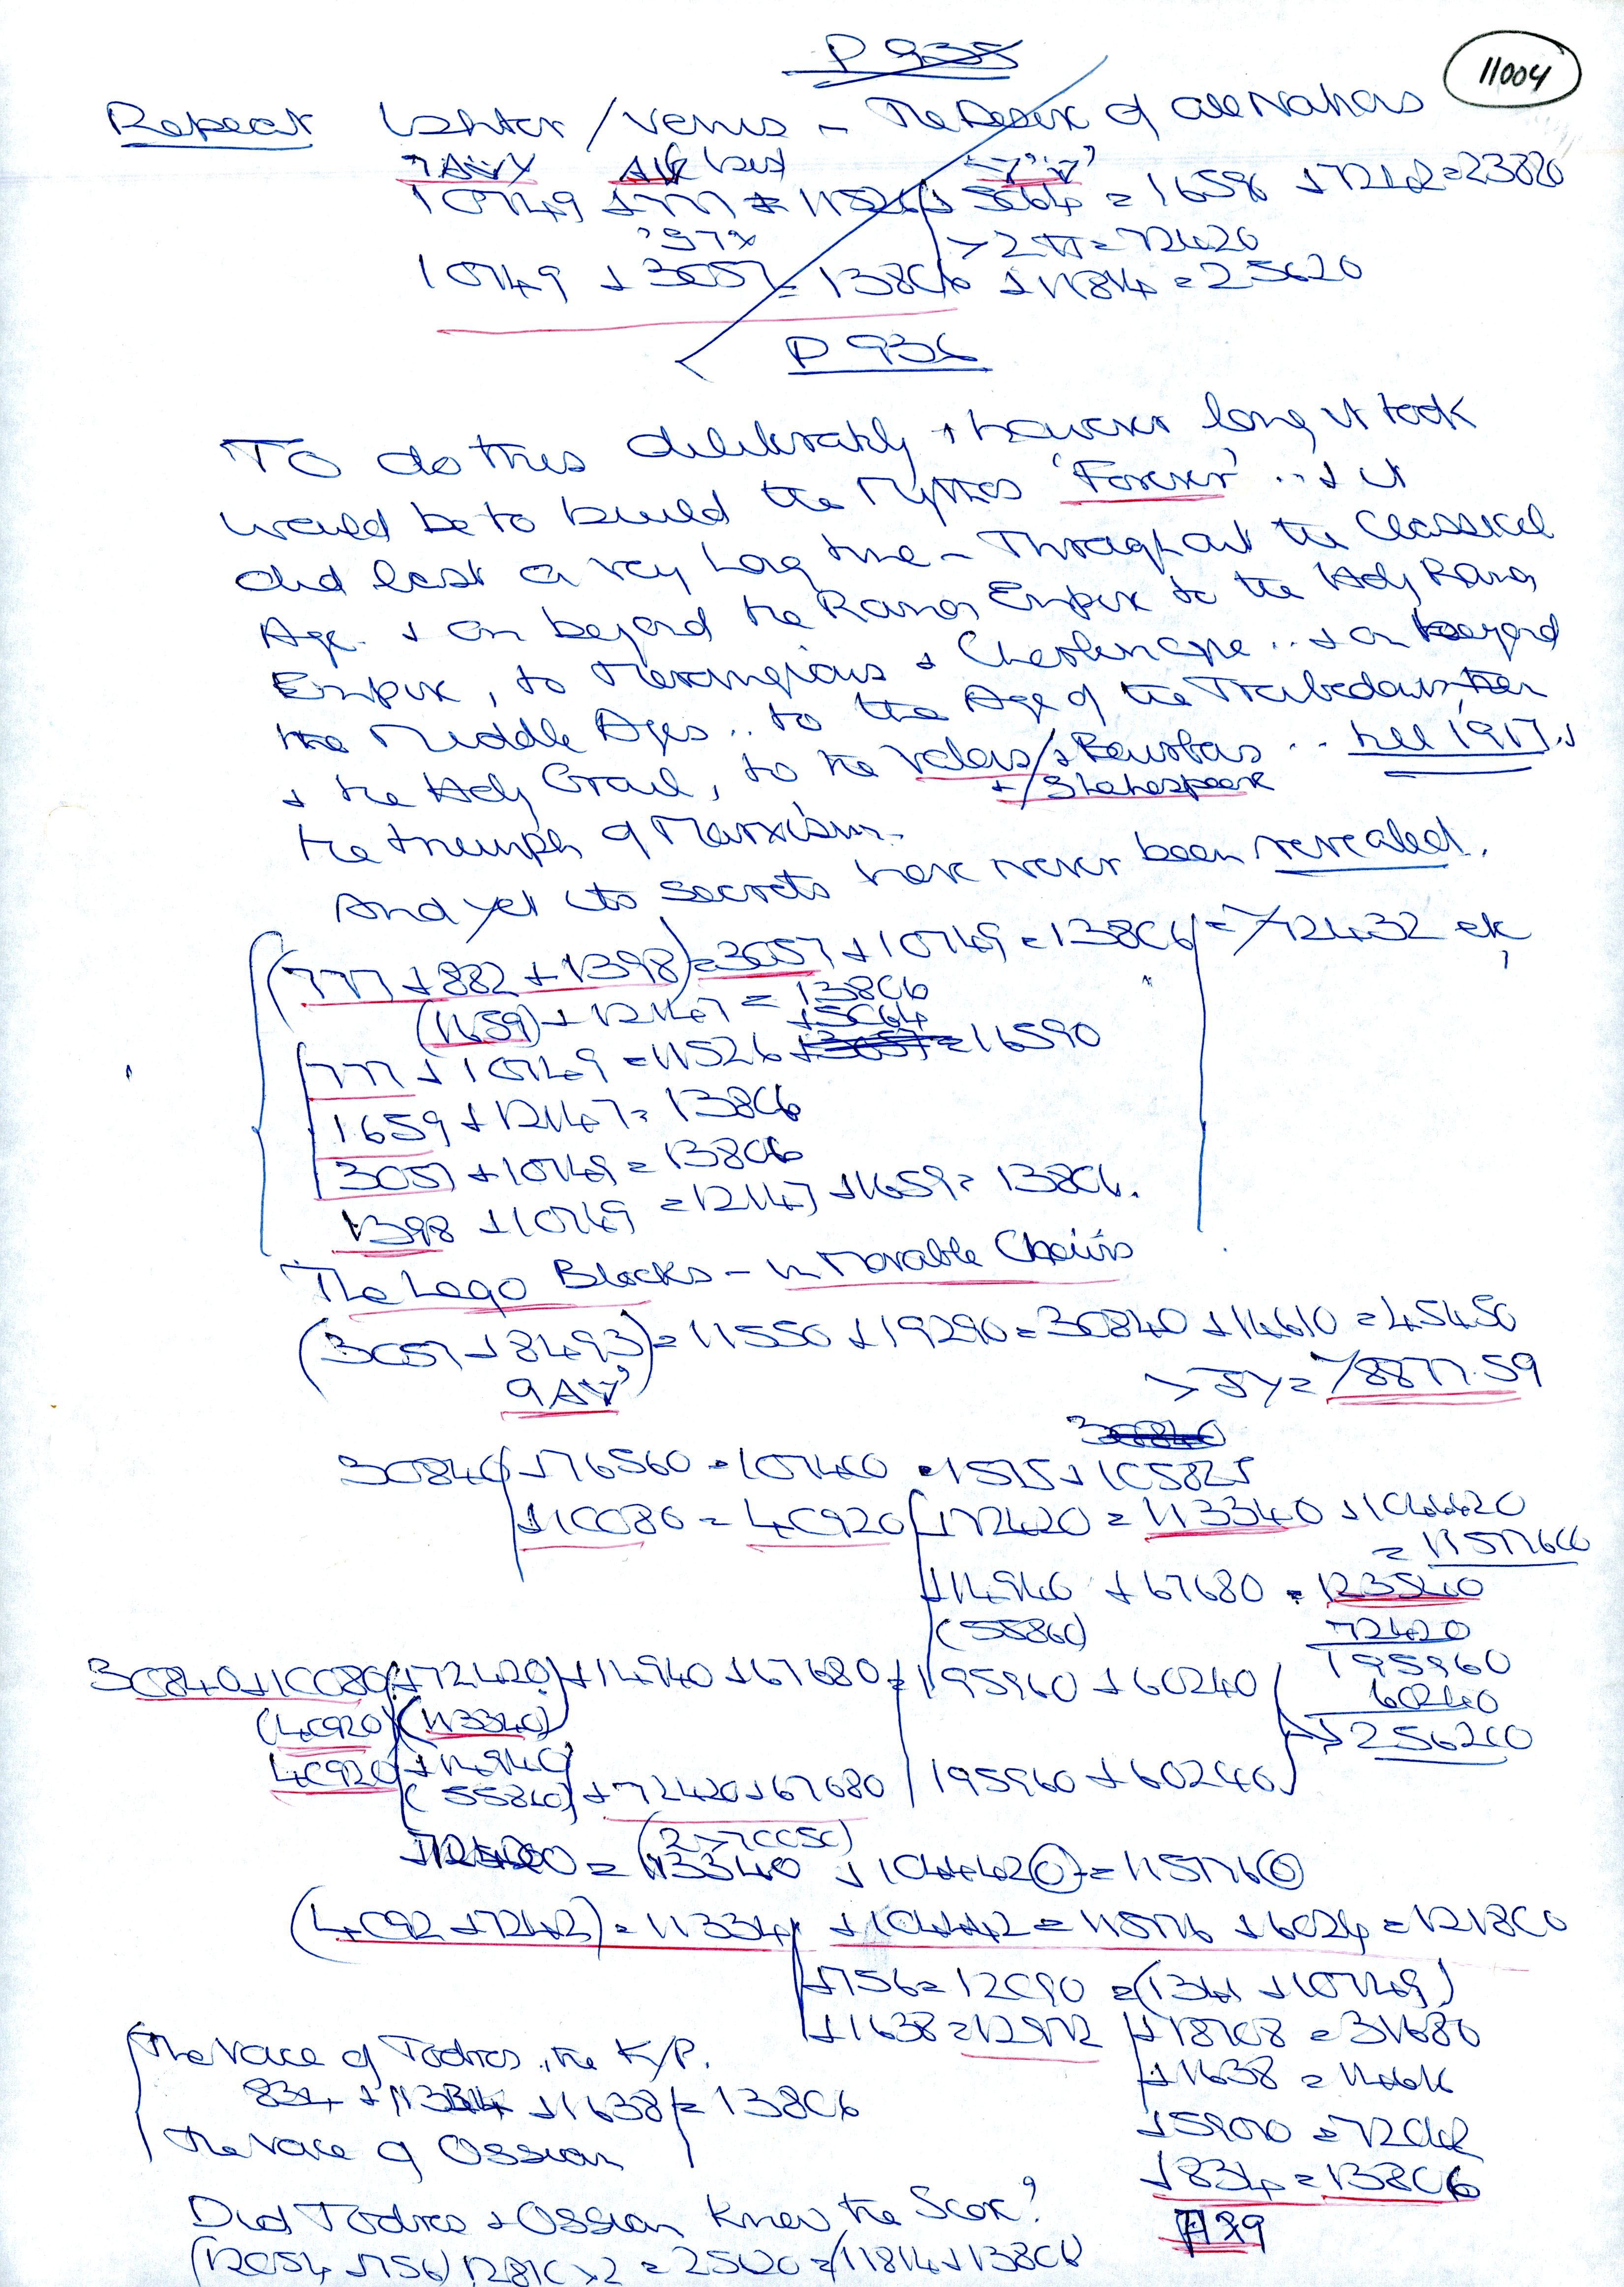 P 935
11004
Repeat Ishtar / Venus - The Desire of all Nations
10749 + 777 = 11526 + 5064 = 16590 + 7242 = 23820
> 2π = 72420
10749 + 3057 = 13806 + 11814 = 25620
P 936
To do this deliberately + however long it took
would be to build the Myths 'Forever' .. + it
did last a very long time - Throughout the Classical
Age + on beyond the Roman Empire to the Holy Roman
Empire, to Merovingians + Charlemagne .. + on beyond
the Middle Ages .. to the Age of the Troubadours, then
+ the Holy Grail, to the .. till 1917 +
+/Shakespeare
the triumph of Marxism.
And yet its secrets have never been revealed.
(777 + 882 + 1398) = 3057 + 10749 = 13806 = 72432 etc,
(1659) + 12147 = 13806
+5064
777 + 10749 = 11526 + 3057 = 16590
1659 + 12147 = 13806
3057 + 10749 = 13806
1398 + 10749 = 12147 + 1659 = 13806.
The Lego Blocks - in Movable Chains
(3057 + 8493) = 11550 + 19290 = 30840 + 14610 = 45450
> 5y = 78877.59
30840
30840 + 76560 = 107400 = 1575 + 105825
+10080 = 40920 + 72420 = 113340 + 1044420
= 1157760
+14940 + 67680 = 123540
(55860) 72420
30840 + 10080 + 72420 + 14940 + 67680 = 195960 + 60240 195960
(40920) (113340) 60240
40920 + 14940 256200
(55860) + 72420 + 67680 195960 + 60240
(2 > 70050)
= 113340 + 1044420 = 1157760
(4092 + 7242) = 11334 + 104442 = 115776 + 6024 = 121800
+756 = 12090 = (1341 + 10749)
+1638 = 12972 + 18708 = 31680
The Voice of Todros, the K/P. +1638 = 14616
834 + 11334 + 1638 = 13806
+59070 = 72042
The Voice of Ossian
+834 = 13806
Did Todros + Ossian know the Score?
(12054 + 756) 12810 > 2 = 25620 = (11814 + 13806